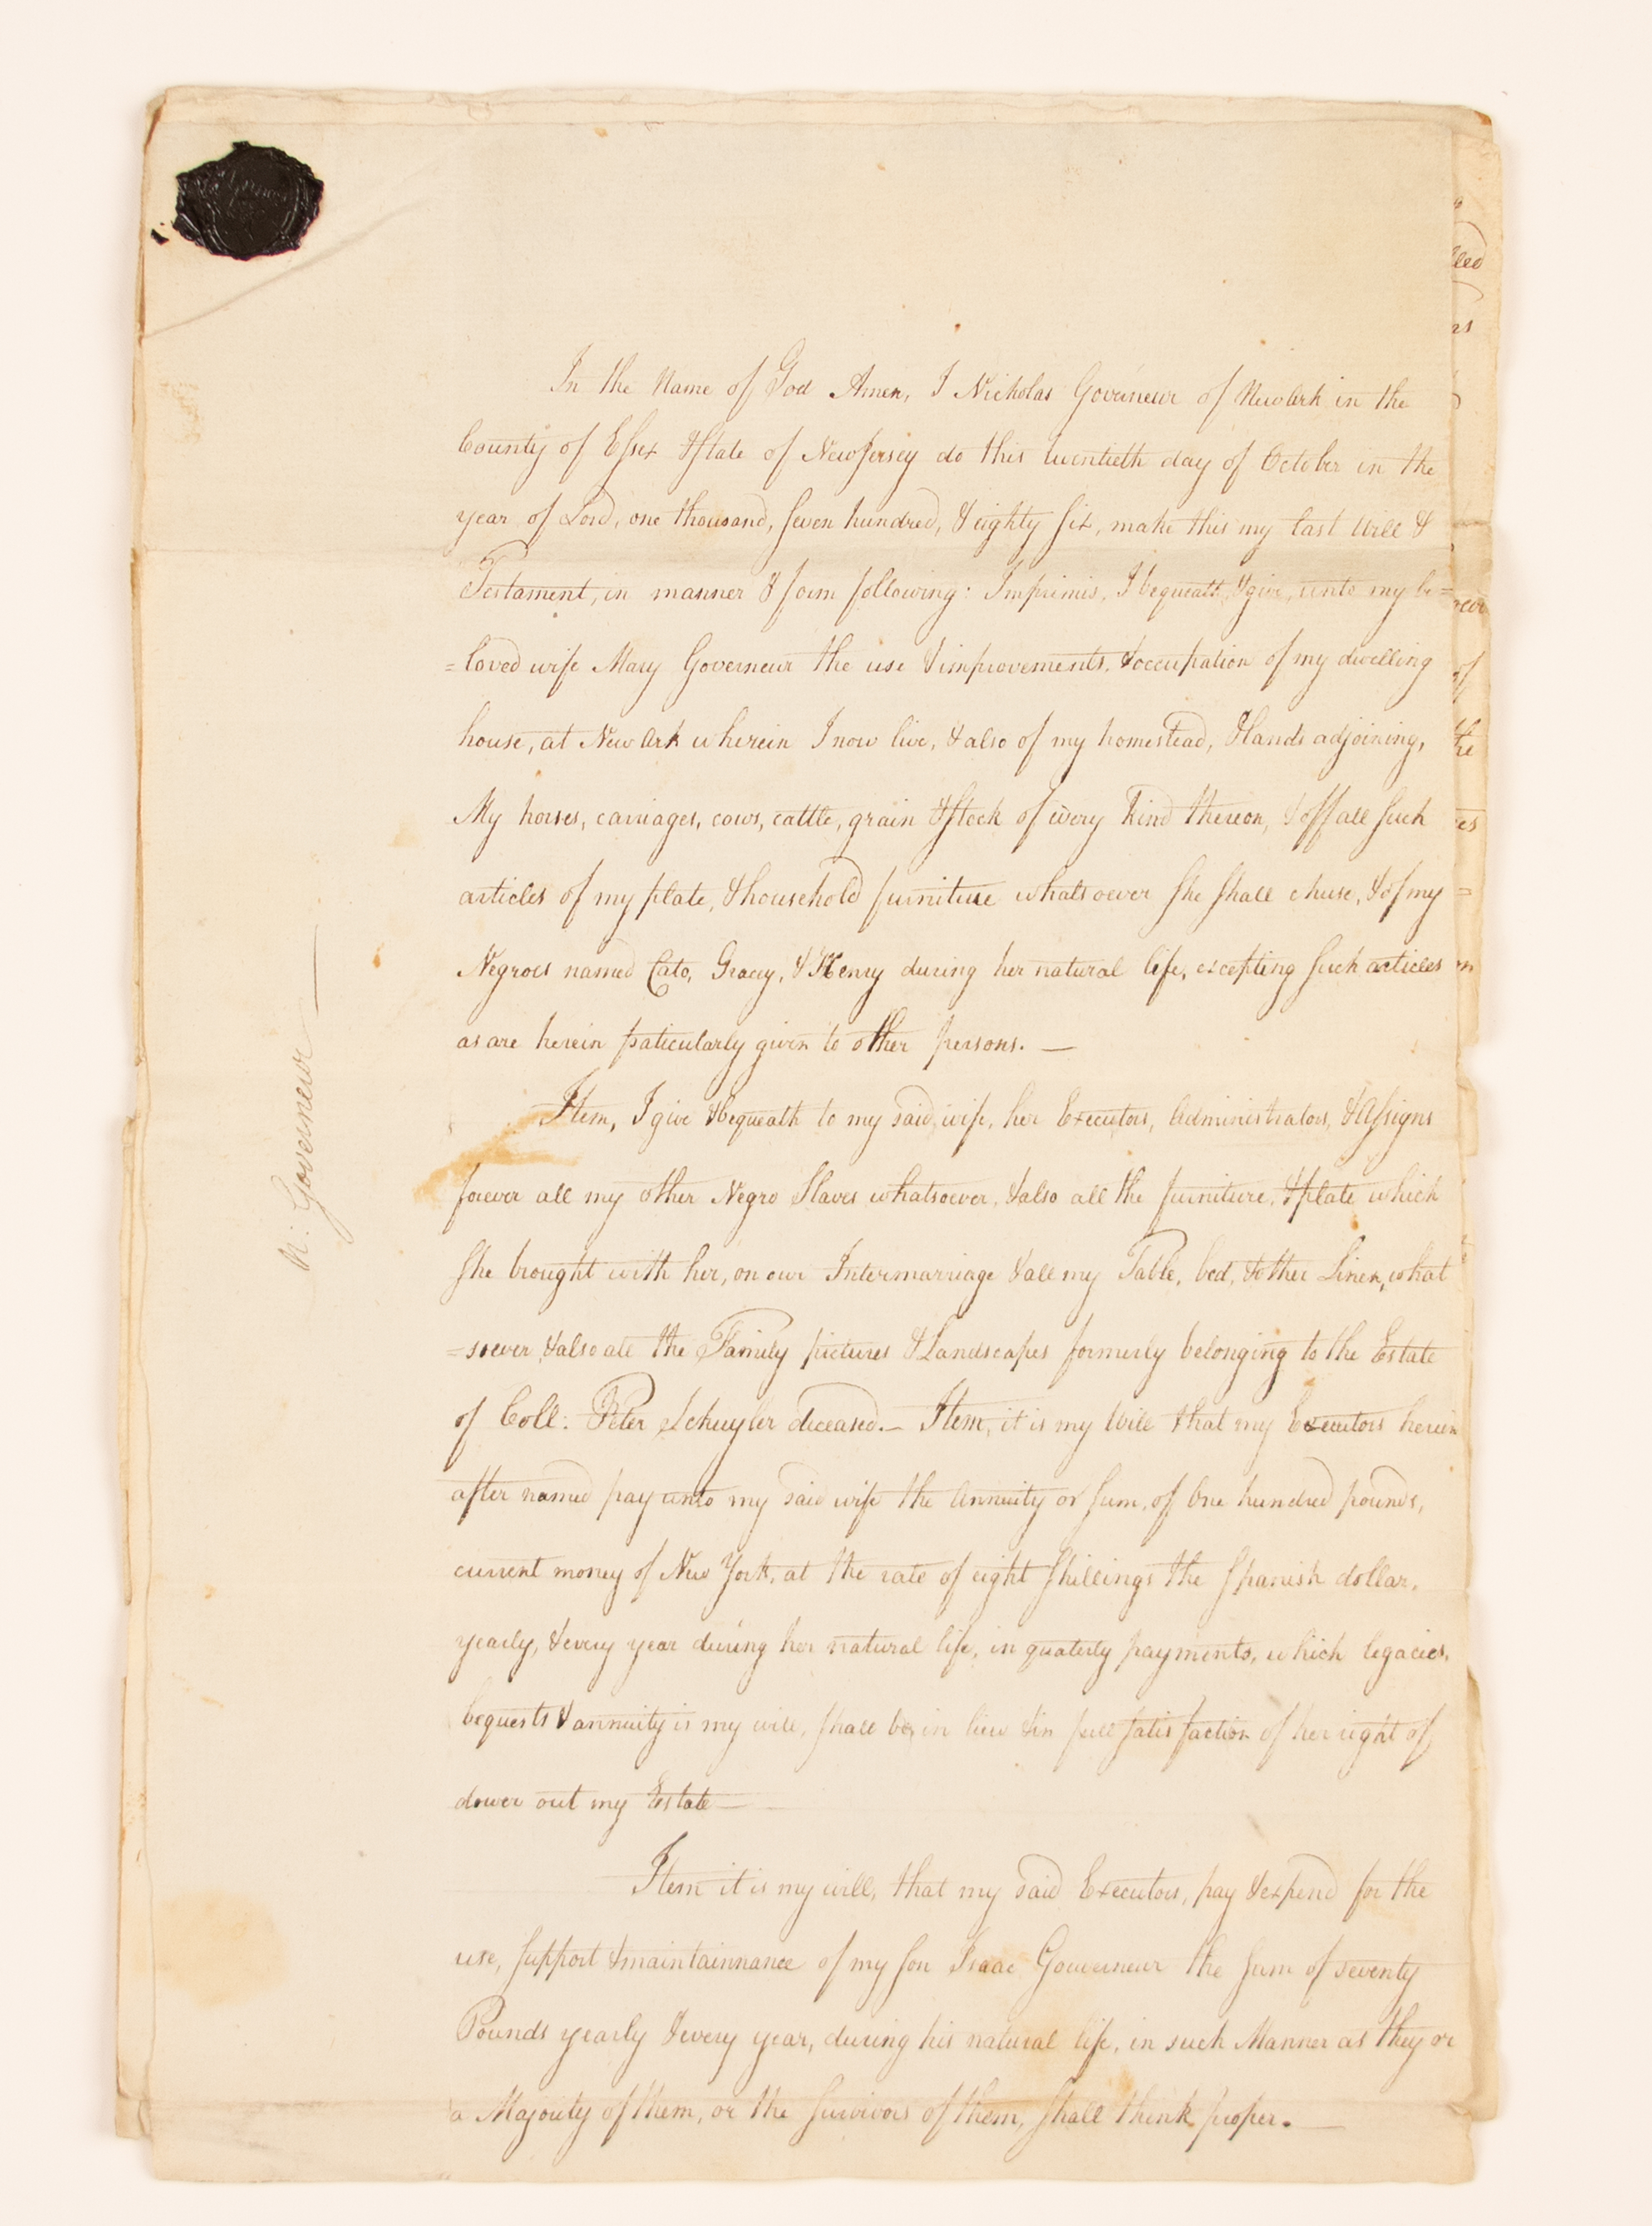 In the Name of God Amen, I Nicholas Governeur of NewArk in the
County of Essex & State of NewJersey do this twentieth day of October in the
year of Lord, one thousand, seven hundred, & eighty six, make this my last Will &
Testament, in manner & form following: Imprimis, I bequeath, & give, unto my be=
=loved wife Mary Governeur the use & improvements, & occupation of my dwelling
house, at NewArk wherein I now live, & also of my homestead, & lands adjoining,
My horses, carriages, cows, cattle, grain & stock of every kind thereon, & off all such
articles of my plate, & household furniture whatsoever she shall chuse, & of my
Negroes named Cato, Gracey, & Henry during her natural life, excepting such articles
as are herein paticularly given to other persons. —
Item, I give & bequeath to my said wife, her Executors, Administrators, & Assigns
forever all my other Negro Slaves whatsoever, & also all the furniture, & plate which
she brought with her, on our Intermarriage & all my Table, bed, & other Linen, what
=soever, & also all the Family pictures & Landscapes formerly belonging to the Estate
of Coll. Peter Schuyler deceased. — Item, it is my Will that my Executors herein
after named pay unto my said wife the Annuity or sum, of One hundred pounds,
current money of New York, at the rate of eight shillings the spanish dollar,
yearly, & every year during her natural life, in quaterly payments, which legacies,
bequests & annuity is my will, shall be in lieu & in full satisfaction of her right of
dower out my Estate —
Item it is my will, that my said Executors, pay & expend for the
use, support & maintainnance of my son Isaac Gouverneur the sum of seventy
Pounds yearly & every year, during his natural life, in such Manner as they or
a Majority of them, or the survivors of them, shall think proper. —
N: Governeur —
of
the